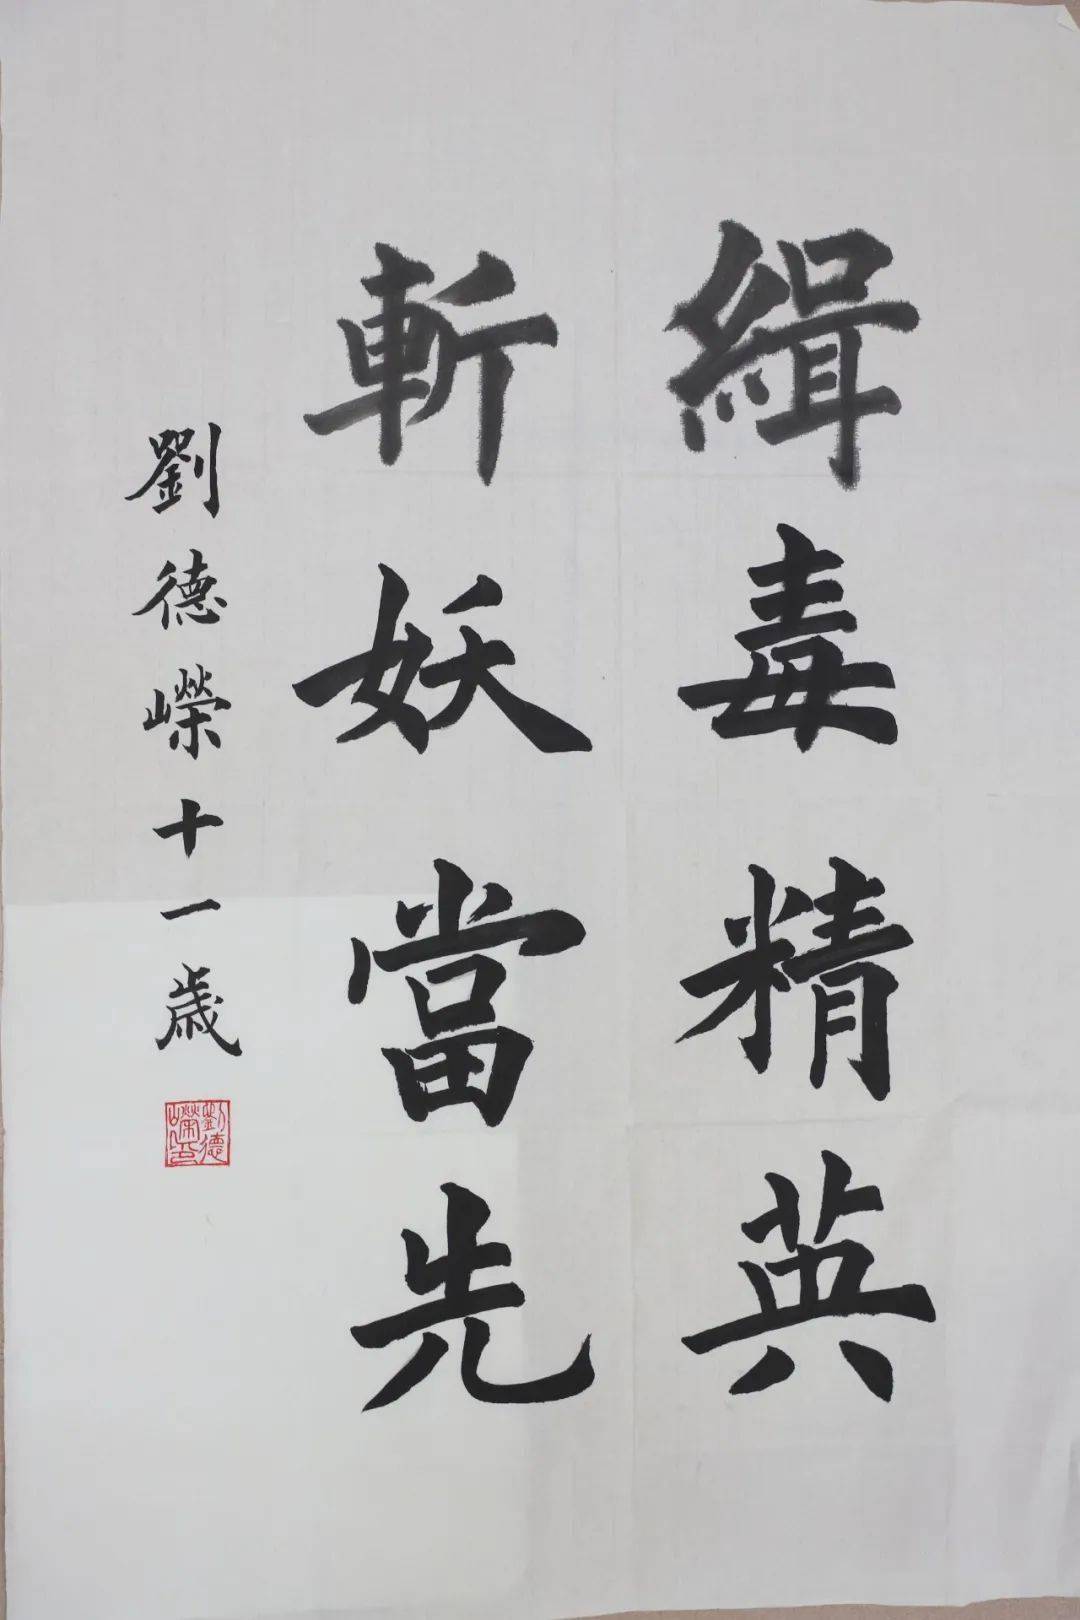 緝毒精英
斬妖當先
劉德嶸十一歲
劉德嶸印